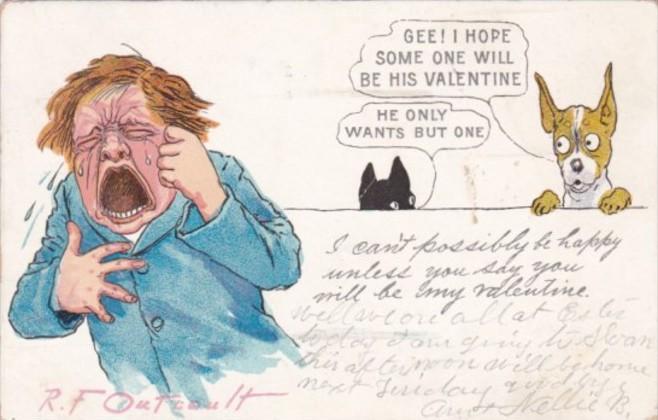 GEE! I HOPE
SOME ONE WILL
BE HIS VALENTINE
HE ONLY
WANTS BUT ONE
I can't possibly be happy
unless you say you
will be my valentine.
well we are all at
today I am going to
this afternoon will be home
next goodbye
Aunt Nellie R
R. F Outcault